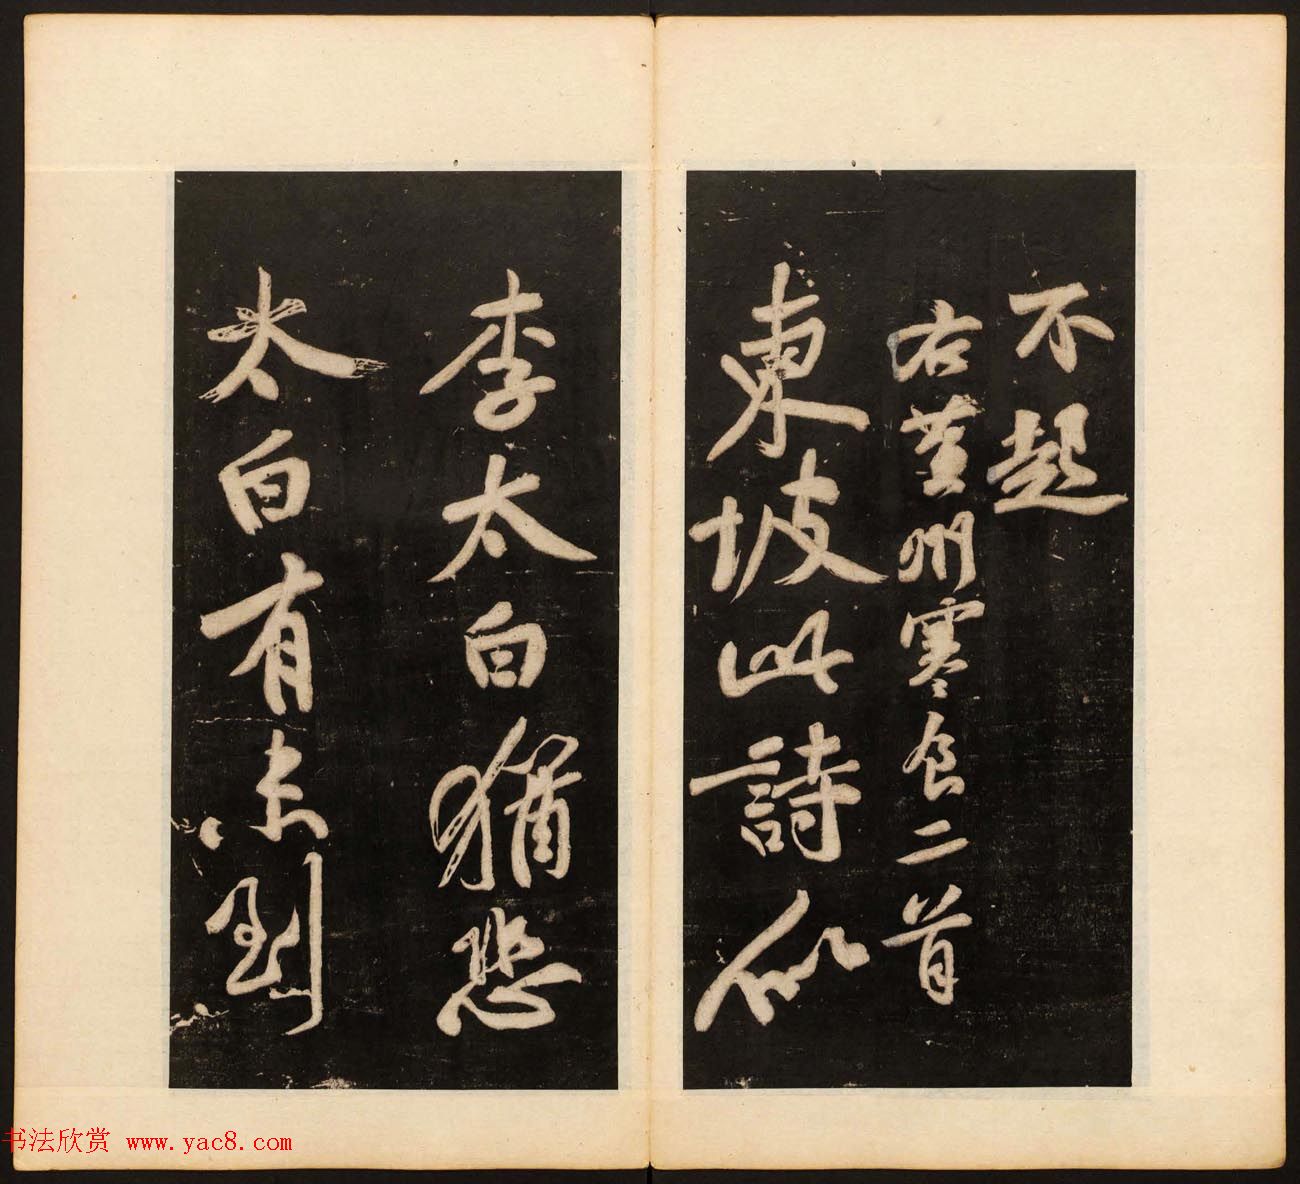 不起
右黄州寒食二首
東坡此詩似
李太白猶恐
太白有未到
书法欣赏 www.yac8.com